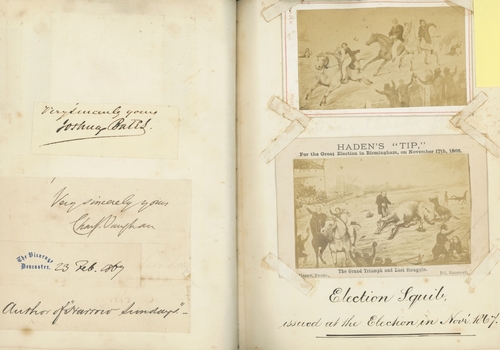 Very sincerely yours
Joshua Bates.
Very sincerely yours
Chas J. Vaughan
The Vicarage
Doncaster.
23 Feb. 1867
Author of "Harrow Sundays" -
HADEN'S "TIP,"
For the Great Election in Birmingham, on November 17th, 1868.
The Grand Triumph and Last Struggle.
Election Squib,
issued at the Election in Novr. 1867.